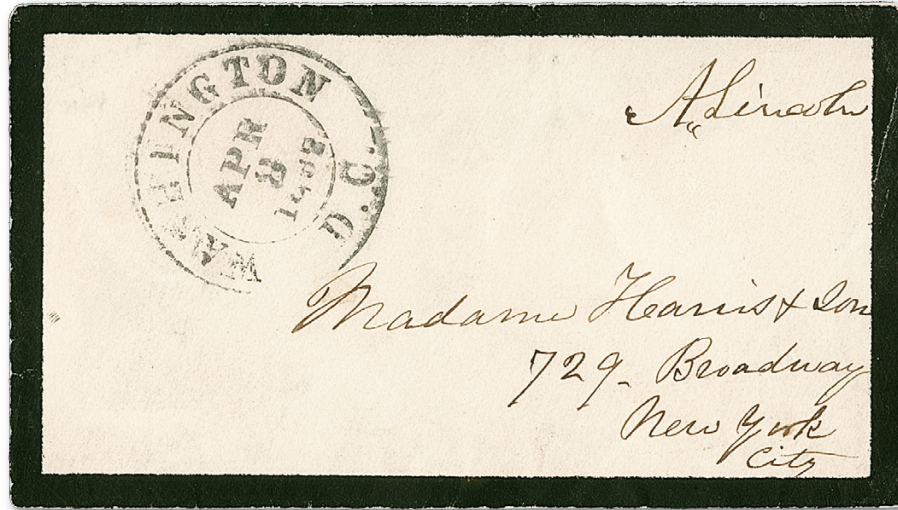 WASHINGTON D.C.
APR
3
A. Lincoln
Madame Harris & Son
729 - Broadway
New York
City